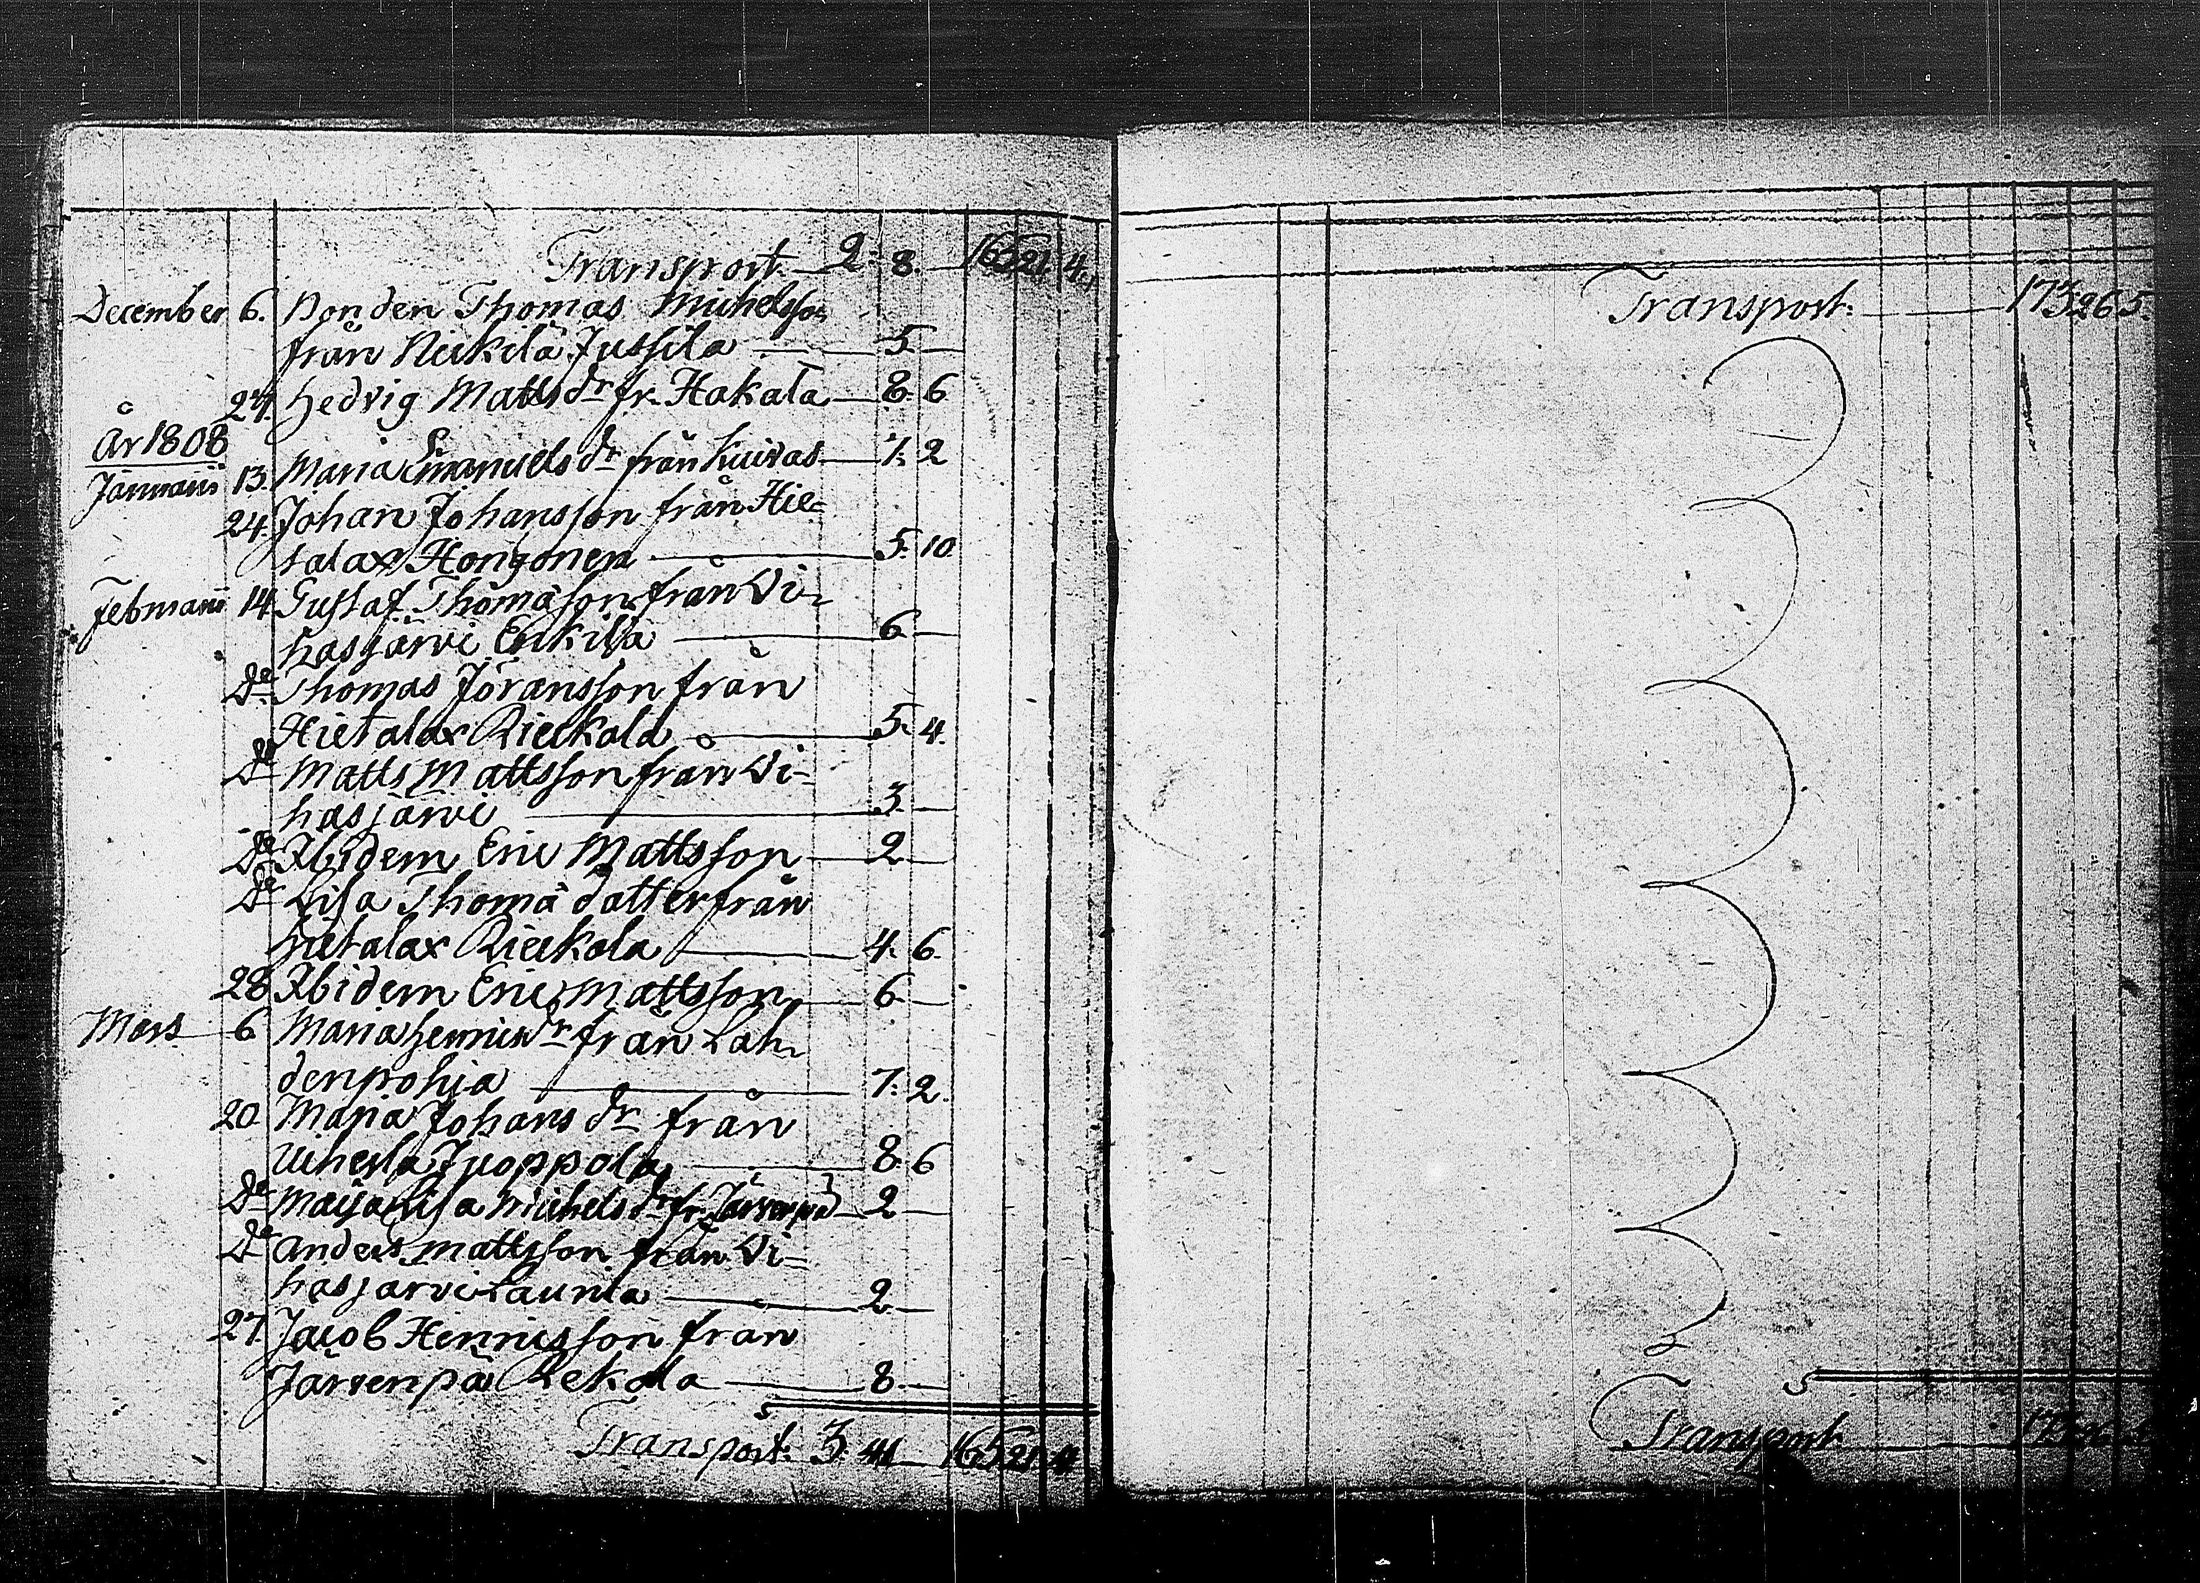 Transport. — 2. 8. — 165 21. 4.
December 6. Bonden Thomas Michelsson
från Neikilä Jussila — 5. —
27. Hedvig Mattsdr fr. Hakala — 8. 6
År 1808
Januarii 13. Maria Emanuelsdr från Kuivas — 7. 2
24. Johan Johansson från Hie=
talax Hongonen — 5. 10
Februarii 14. Gustaf Thomasson från Vi=
hasjärvi Erkilä — 6. —
Do Thomas Jöransson från
Hietalax Rieckola — 5. 4.
Do Matts Mattsson från Vi=
hasjärvi — 3. —
Do Ibidem Eric Mattsson — 2 —
Do Lisa Thomä datter från
Hietalax Rieckola — 4. 6.
28 Ibidem Eric Mattsson — 6 —
Mars 6 Maria Henricsdr från Lah=
denpohja — 7. 2.
20. Maria Johansdr från
Juoppola — 8. 6
Do Maija Lisa Michelsdr fr. Järvenpä — 2 —
Do Anders Mattsson från Vi=
hasjärvi Launia — 2 —
27. Jacob Henricsson från
Järvenpä Rekola — 8. —
Transport. 3. 41 — 165 21. 4
Transport. — 173 26 5.
Transport — 173 26